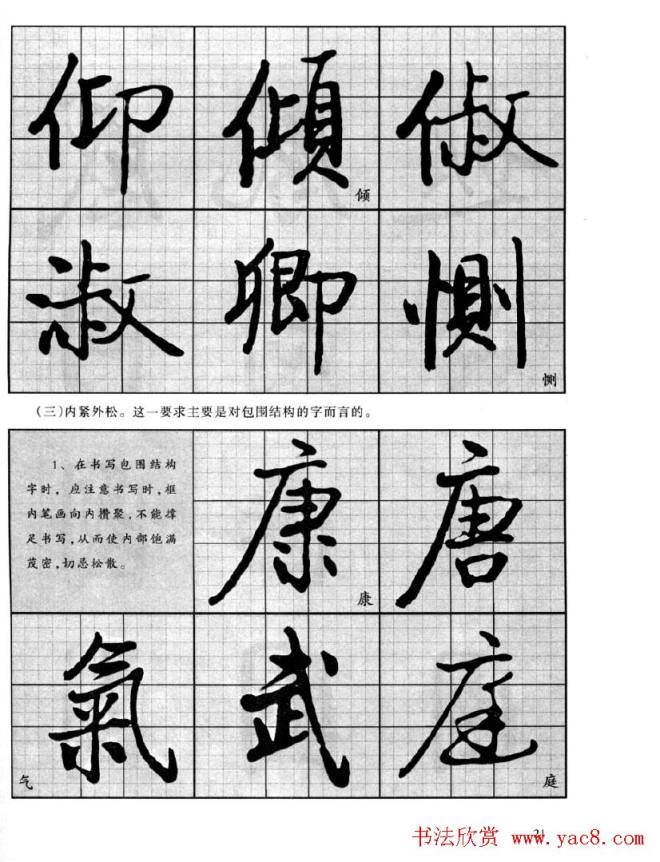 仰 傾 俶
倾
淑 卿 惻
恻
(三)内紧外松。这一要求主要是对包围结构的字而言的。
1、在书写包围结构
字时,应注意书写时,框
内笔画向内攒聚,不能撑
足书写,从而使内部饱满
茂密,切忌松散。
康 唐
康
氣 武 庭
气 庭
21
书法欣赏 www.yac8.com